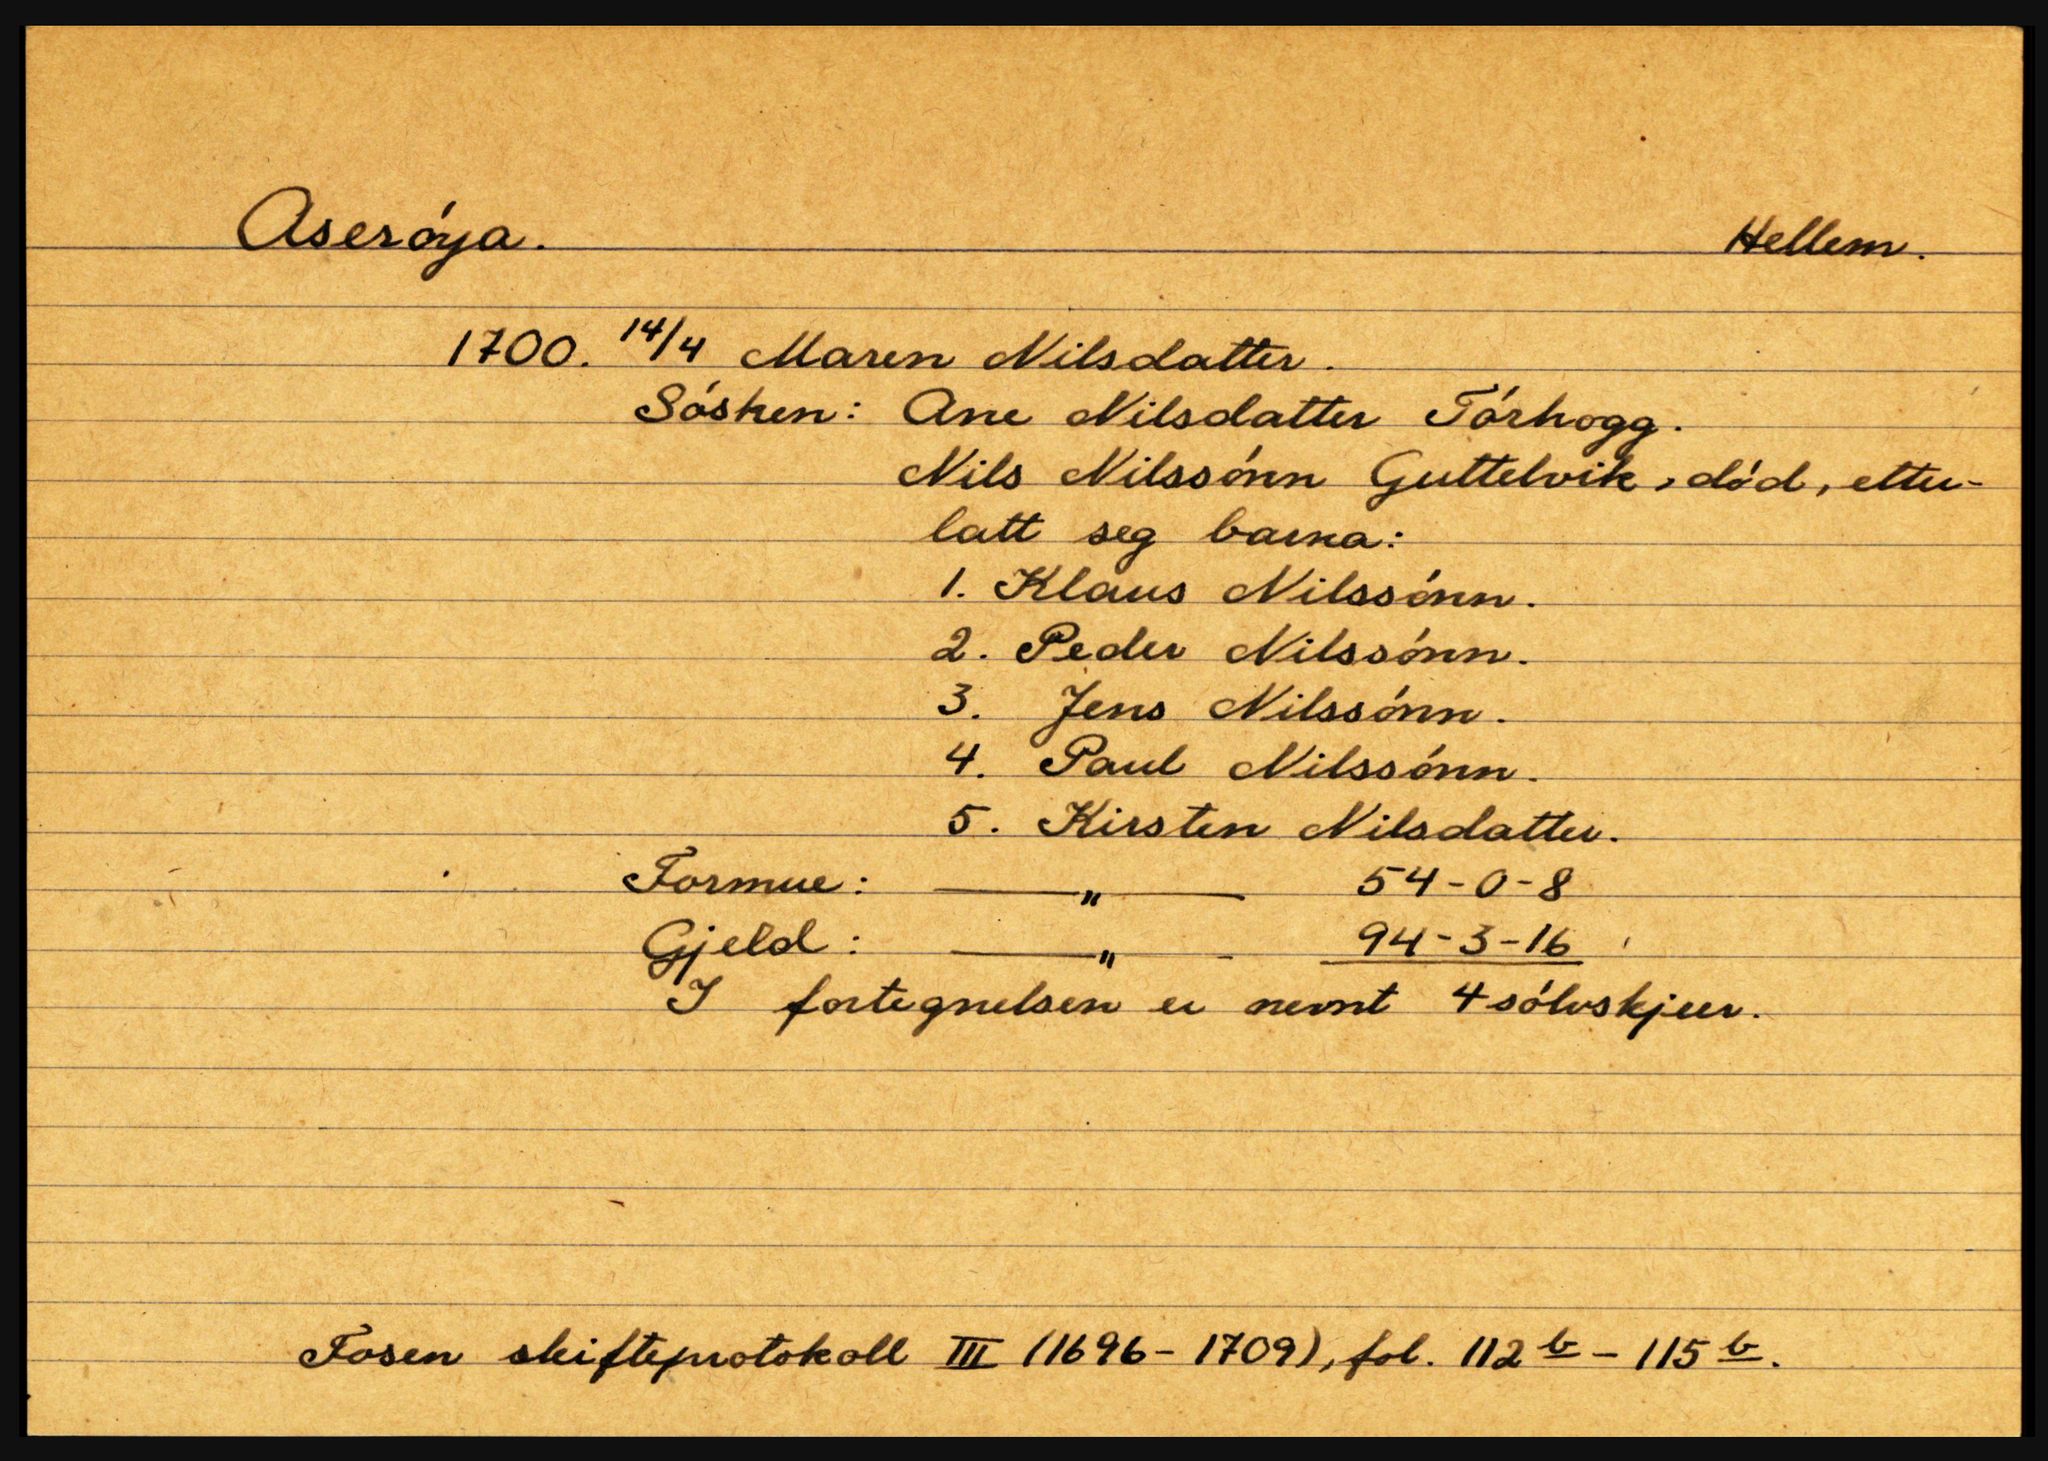 Aserøya. Hellem.
1700. 14/4 Maren Nilsdatter.
Søsken: Ane Nilsdatter Tørhogg.
Nils Nilssønn Guttelvik, død, etter-
latt seg barna:
1. Klaus Nilssønn.
2. Peder Nilssønn.
3. Jens Nilssønn.
4. Paul Nilssønn.
5. Kirsten Nilsdatter.
Formue: —„— 54-0-8
Gjeld: —„— 94-3-16
I fortegnelsen er nevnt 4 sølvskjeer.
Fosen skifteprotokoll III (1696-1709), fol. 112 b - 115 b.